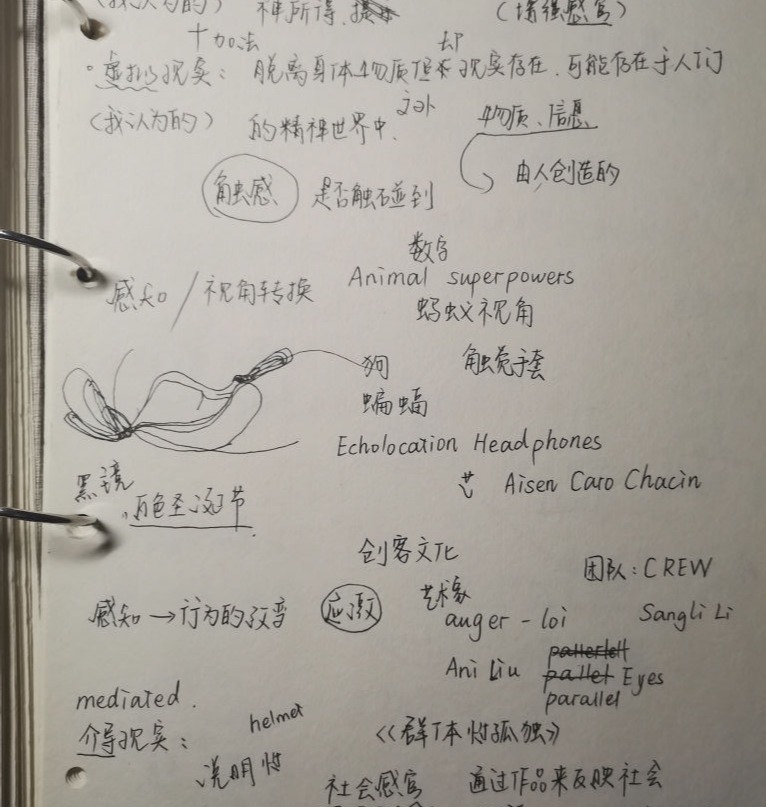 (我认为的) 神所得. (增强感官)
十加法
却
·虚拟现实：脱离身体物质但 现实存在. 可能存在于人们
(我认为的) 的精神世界中. 物质、信息
由人创造的
触感 是否触碰到
数字
感知/视角转换 Animal superpowers
蚂蚁视角
狗 触觉手套
蝙蝠
Echolocation Headphones
黑镜 艺 Aisen Caro Chacin
白色圣诞节
创客文化
团队：CREW
感知→行为的改变 艺术家
auger-loi Sangli Li
Ani Liu parallel Eyes
mediated.
介导现实： helmet 《群体性孤独》
说明性
社会感官 通过作品来反映社会